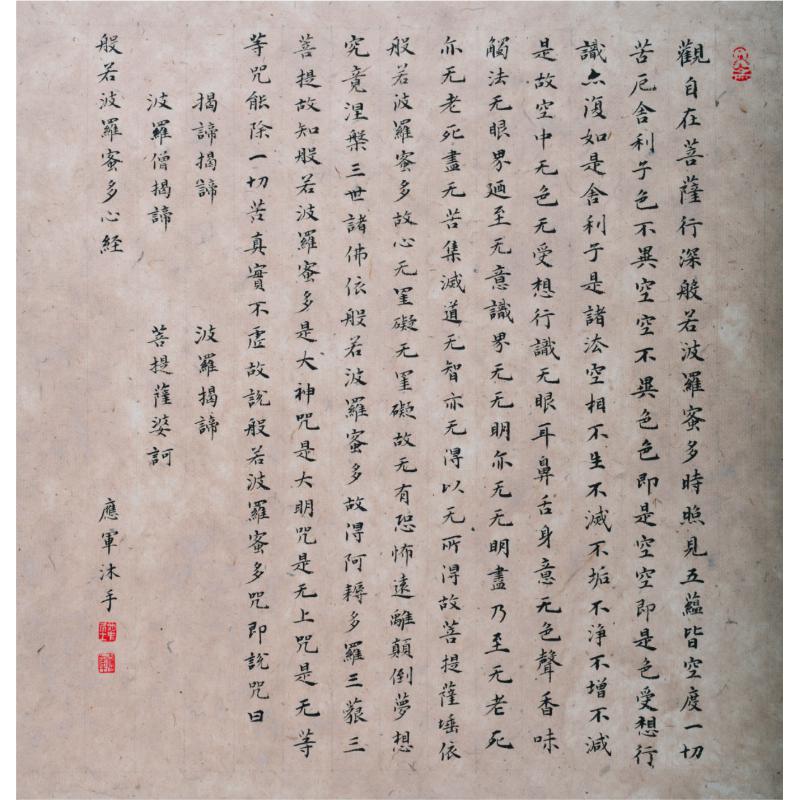 觀自在菩薩行深般若波羅蜜多時照見五蘊皆空度一切
苦厄舍利子色不異空空不異色色即是空空即是色受想行
識亦復如是舍利子是諸法空相不生不滅不垢不淨不增不減
是故空中无色无受想行識无眼耳鼻舌身意无色聲香味
觸法无眼界廼至无意識界无无明亦无无明盡乃至无老死
亦无老死盡无苦集滅道无智亦无得以无所得故菩提薩埵依
般若波羅蜜多故心无罣礙无罣礙故无有恐怖遠離顛倒夢想
究竟涅槃三世諸佛依般若波羅蜜多故得阿耨多羅三藐三
菩提故知般若波羅蜜多是大神咒是大明咒是无上咒是无等
等咒能除一切苦真實不虛故說般若波羅蜜多咒即說咒曰
揭諦揭諦 波羅揭諦
波羅僧揭諦 菩提薩婆訶
般若波羅蜜多心経 應軍沐手